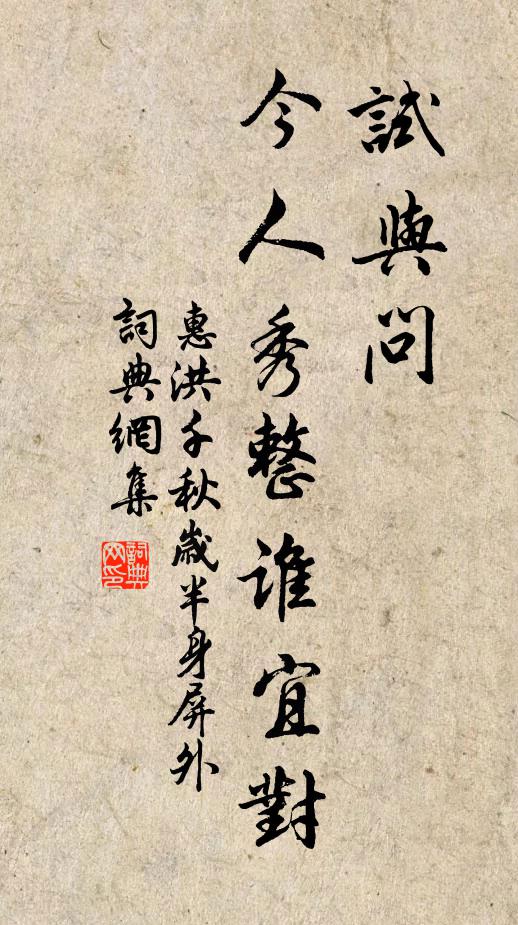 試與問
今人秀整谁宜對
惠洪千秋歲半身屏外
詞典網集
詞典网印